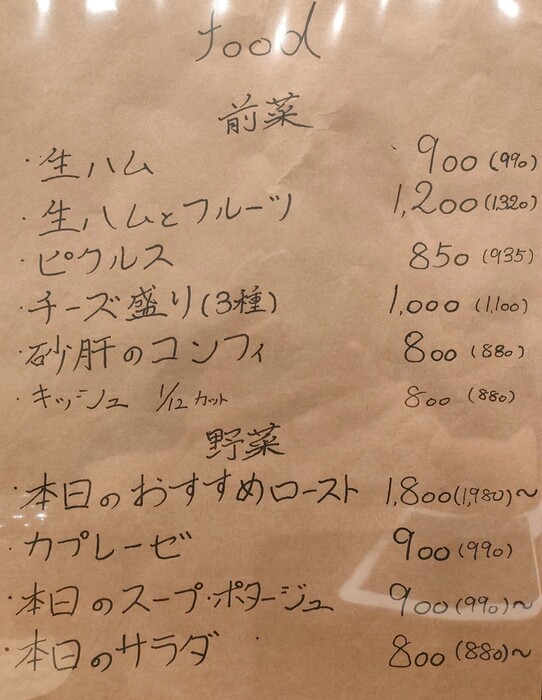 food
前菜
・生ハム 900 (990)
・生ハムとフルーツ 1,200 (1,320)
・ピクルス 850 (935)
・チーズ盛り(3種) 1,000 (1,100)
・砂肝のコンフィ 800 (880)
・キッシュ 1/12カット 800 (880)
野菜
・本日のおすすめロースト 1,800(1,980)~
・カプレーゼ 900 (990)
・本日のスープ・ポタージュ 900 (990)~
・本日のサラダ 800 (880)~